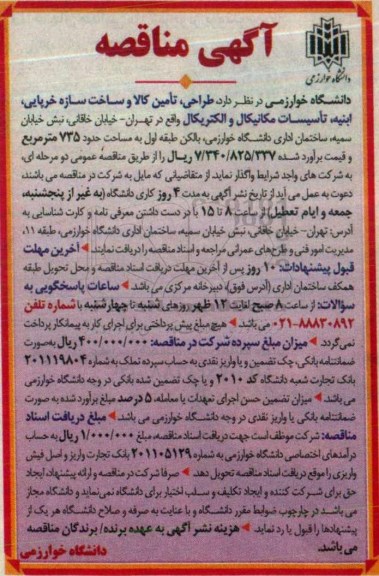 آگهی مناقصه
دانشگاه خوارزمی
دانشگاه خوارزمی در نظر دارد، طراحی، تأمین کالا و ساخت سازه خرپایی،
ابنیه، تأسیسات مکانیکال و الکتریکال واقع در تهران- خیابان خاقانی، نبش خیابان
سمیه، ساختمان اداری دانشگاه خوارزمی، بالکن طبقه اول به مساحت حدود ۷۳۵ مترمربع
و قیمت برآورد شده ۷/۳۴۰/۸۲۵/۳۳۷ ریال را از طریق مناقصه عمومی دو مرحله ای،
به شرکت های واجد شرایط واگذار نماید. از متقاضیانی که مایل به شرکت در مناقصه می باشند،
دعوت به عمل می آید از تاریخ نشر آگهی به مدت ۴ روز کاری دانشگاه (به غیر از پنجشنبه،
جمعه و ایام تعطیل) از ساعت ۸ تا ۱۵ با در دست داشتن معرفی نامه و کارت شناسایی به
آدرس: تهران- خیابان خاقانی، نبش خیابان سمیه، ساختمان اداری دانشگاه خوارزمی، طبقه ۱۱،
مدیریت امور فنی و طرح‌های عمرانی مراجعه و اسناد مناقصه را دریافت نمایند. آخرین مهلت
قبول پیشنهادات: ۱۰ روز پس از آخرین مهلت دریافت اسناد مناقصه و محل تحویل طبقه
همکف ساختمان اداری (آدرس فوق)، دبیرخانه مرکزی می باشد. ساعات پاسخگویی به
سؤالات: از ساعت ۸ صبح لغایت ۱۲ ظهر روزهای شنبه تا چهارشنبه با شماره تلفن
۰۲۱-۸۸۸۳۰۸۹۲ می باشد. هیچ مبلغ پیش پرداختی برای اجرای کار به پیمانکار پرداخت
نمی گردد. میزان مبلغ سپرده شرکت در مناقصه: ۴۰۰/۰۰۰/۰۰۰ ریال به صورت
ضمانتنامه بانکی، چک تضمین و یا واریز نقدی به حساب سپرده تملک به شماره
۲۰۱۱۱۹۸۰۴ بانک تجارت شعبه دانشگاه کد ۲۰۱۰ و یا چک تضمین شده بانکی در وجه دانشگاه خوارزمی
می باشد. میزان تضمین حسن اجرای تعهدات یا معامله، ۵ درصد مبلغ برآورد شده به صورت
ضمانتنامه بانکی یا واریز نقدی در وجه دانشگاه خوارزمی می باشد. مبلغ دریافت اسناد
مناقصه: شرکت موظف است جهت دریافت اسناد مناقصه، مبلغ ۱/۰۰۰/۰۰۰ ریال به حساب
درآمدهای اختصاصی دانشگاه خوارزمی به شماره ۲۰۱۱۰۵۱۳۹ بانک تجارت واریز و اصل فیش
واریزی را موقع دریافت اسناد مناقصه تحویل دهد. صرفا شرکت در مناقصه و ارائه پیشنهاد، ایجاد
حق برای شرکت کننده و ایجاد تکلیف و سلب اختیار برای دانشگاه نمی نماید و دانشگاه مجاز
می باشد در چارچوب ضوابط مقرر دانشگاه و با عنایت به صرفه و صلاح دانشگاه هر یک از
پیشنهادها را قبول یا رد نماید. هزینه نشر آگهی به عهده برنده/ برندگان مناقصه
می باشد.
دانشگاه خوارزمی